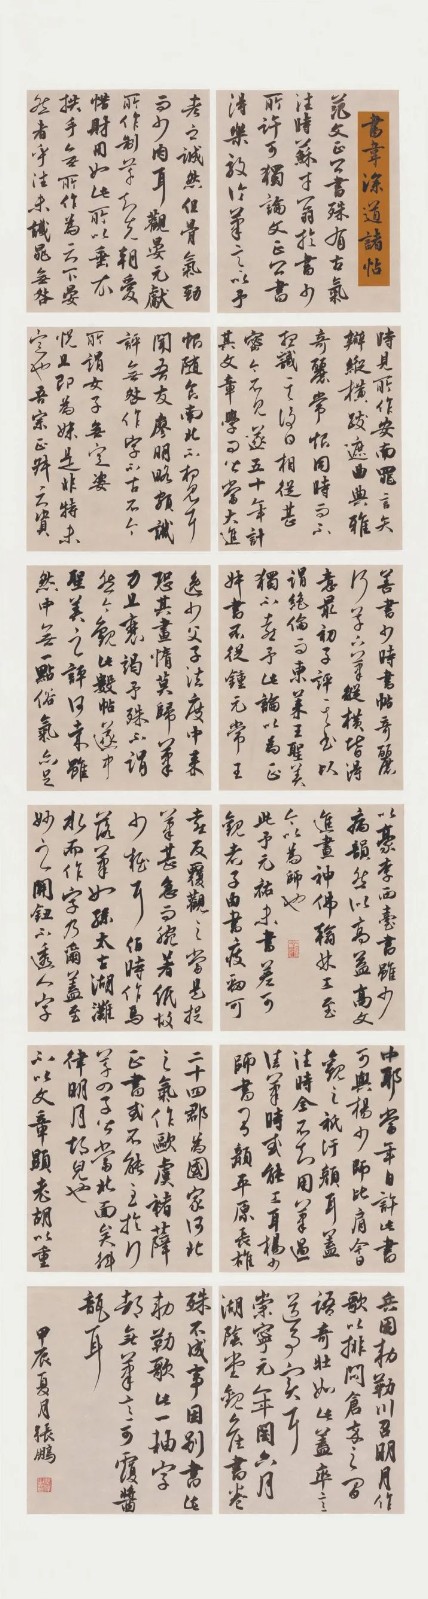 書韋深道諸帖
范文正公書殊有古氣
法時蘇才翁於書少
所許可獨論文正公書
得樂毅論筆意以予
考之誠然但骨氣勁
而少肉耳觀晏元獻
所作制草知先朝愛
惜財用如此所以垂衣
拱手無所作為天下晏
然者乎注未識晁無咎
時見所作安南罪言矢
辯縱橫跋遮曲典雅
奇麗常恨同時而不
相識其後日相從甚
密今不見遂五十年計
其文章學問皆當大進
恨隨食南北不相見耳
聞吾友廖明略頗譏
評無咎作字不古不今
所謂女子無定姿
悅且即為妹是非特未
定也吾宗正叔云資
善書少時書帖奇麗
行草六筆縱橫皆得
意最初予評其書以
謂絕倫而東萊王聖美
獨不喜予此論以為正
叔書不從鍾元常王
逸少父子法度中來
恐其畫惰莫歸筆
力且衰謁予殊不謂
然今觀此數帖遂中
聖美之評雖
然中無一點俗氣亦足
以豪李西臺書雖少
病韻然以高益高文
進畫神佛翰林工至
今以為師也
此予元祐末書差可
觀老子由書瘦勁可
喜反覆觀之當是捉
筆甚急而腕著紙故
少耳 伯時作馬
落筆如孫太古湖灘
水而作字乃爾蓋至
妙之開鈕不透入字
中耶當年自許此書
可與楊少師比肩今日
觀之衹汗顏耳蓋
往時全不知用筆過
法筆時或能工耳楊少
師書可顏平原長雄
二十四郡為國家河北
之氣作歐虞褚薛
正書或不能至於行
草四子皆當北面矣斛
律明月胡兒也
不以文章顯老胡以重
兵困勑勒川召明月作
歌以排悶倉卒之間
語奇壯如此蓋率意
道事實耳
崇寧元年閏六月
湖陰堂觀書卷
殊不成事因別書此
勑勒歌此一軸字
都無筆意可覆醬
瓿耳
甲辰夏月張鵬